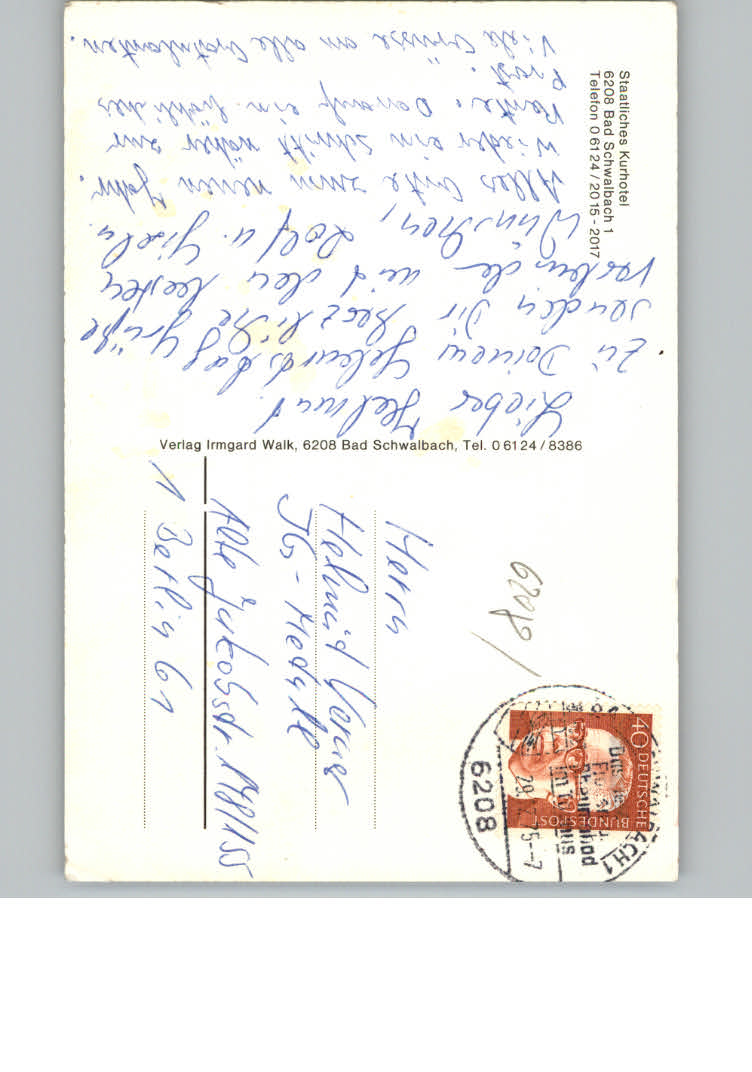 Staatliches Kurhotel
6208 Bad Schwalbach 1
Telefon 0 61 24 / 2015 - 2017
Lieber Helmut.
Zu Deinem Geburtstag
senden Dir herzliche Grüße
verbunden mit den besten
Wünschen, Rolf u. Gisela.
Alles Gute zum neuen Jahr.
Wieder ein Schritt näher zur
Rente. Darauf ein fröhliches
Prost.
Viele Grüsse an alle
Verlag Irmgard Walk, 6208 Bad Schwalbach, Tel. 0 61 24 / 8386
Herrn
Helmut
Alte Jakobstr. 148/155
1 Berlin 61
6208
40 DEUTSCHE
BUNDESPOST
6208